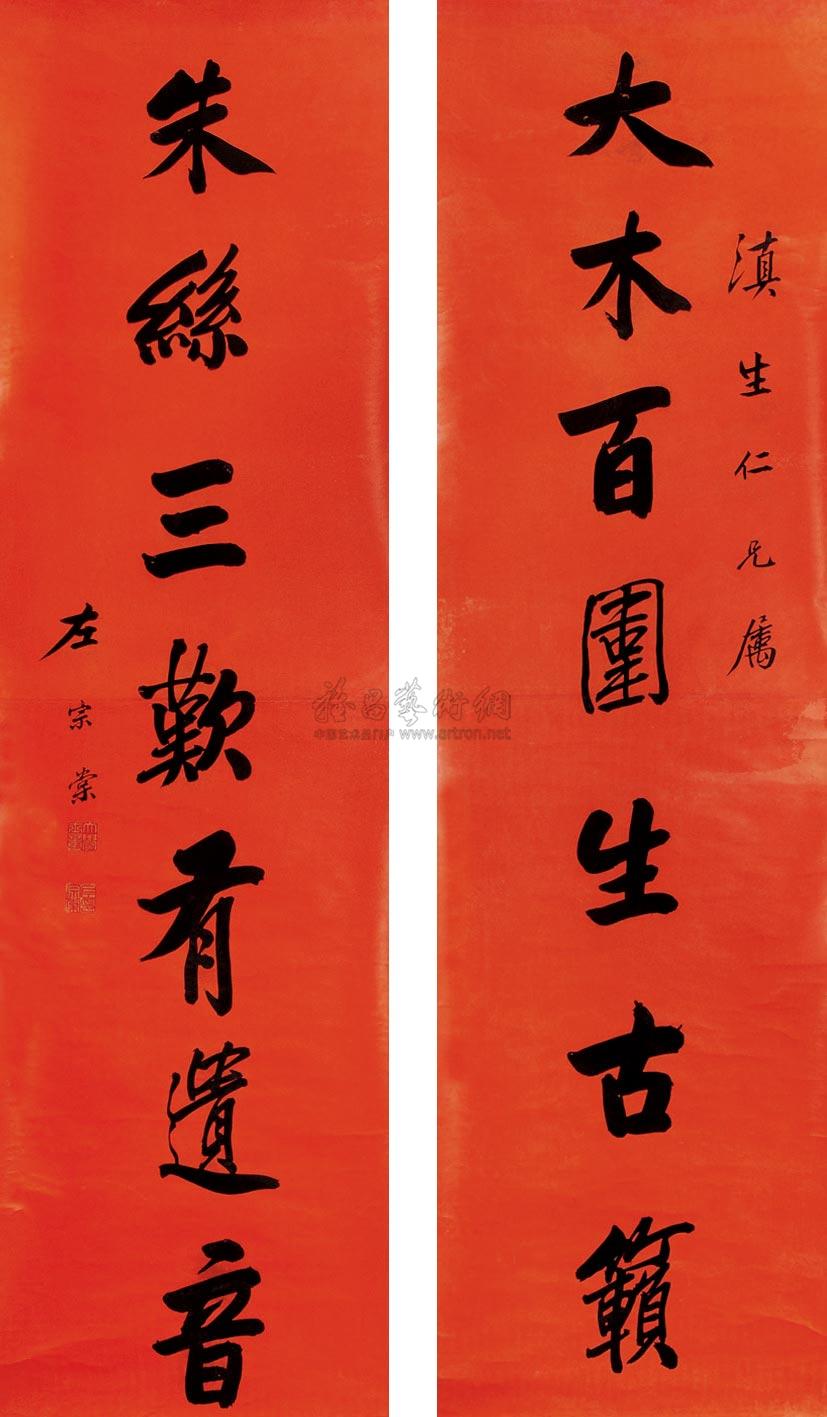 滇生仁兄属
大木百围生古籟
朱絲三歎有遺音
左宗棠
雅昌藝術網
中国艺术品门户 www.artron.net